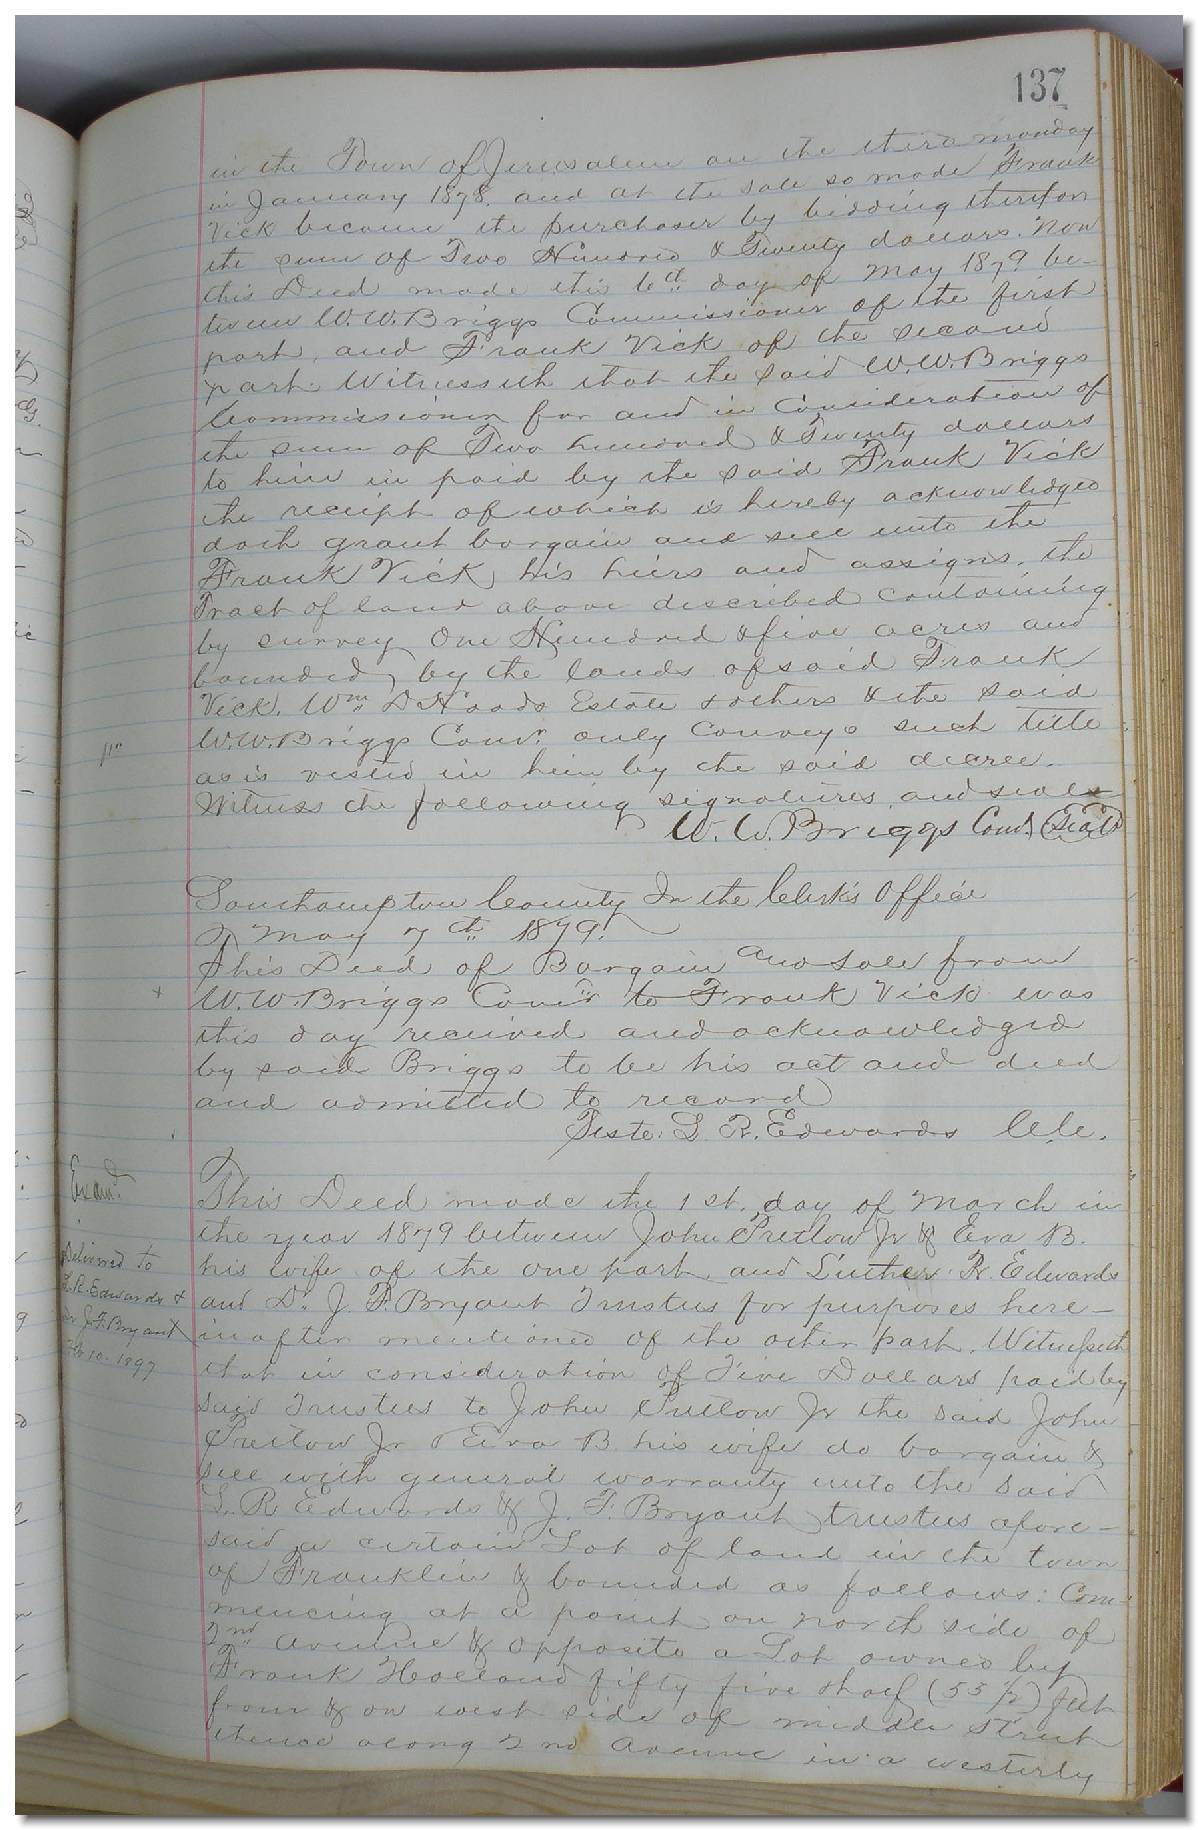 137
in the Town of Jerusalem on the third monday
in January 1878. and at the sale so made Frank
Vick became the purchaser by bidding therefor
the sum of Two Hundred & Twenty dollars. Now
this Deed made this 6th day of May 1879 be-
tween W. W. Briggs Commissioner of the first
part, and Frank Vick of the second
part. Witnesseth that the said W. W. Briggs
Commissioner for and in Consideration of
the sum of Two hundred & Twenty dollars
to him in paid by the said Frank Vick
the receipt of which is hereby acknowledged
doth grant bargain and sell unto the
Frank Vick, his hiers and assigns. the
Tract of land above described containing
by survey One Hundred & five acres and
bounded, by the lands of said Frank
Vick. Wm D Hoods Estate & others & the said
W. W. Briggs Comr. only conveys such title
as is vested in him by the said decree.
Witness the following signatures and seals
W. W. Briggs Comr. Seal
Southampton County In the Clerk's Office
May 7th 1879.
This Deed of Bargain and Sale from
W. W. Briggs Comr to Frank Vick was
this day received and acknowledged
by said Briggs to be his act and deed
and admitted to record
Teste: L. R. Edwards C.C.
Exam.
Delivered to
L. R. Edwards &
Dr J. F. Bryant
Feb 10. 1897
This Deed made the 1st. day of March in
the year 1879 between John Pretlow Jr & Eva B.
his wife of the one part and Luther R. Edwards
and Dr. J. F. Bryant Trustees for purposes here-
inafter mentioned of the other part. Witnesseth
that in consideration of Five Dollars paid by
said Trustees to John Pretlow Jr the said John
Pretlow Jr & Eva B. his wife do bargain &
sell with general warranty unto the said
L. R. Edwards & J. F. Bryant trustees afore-
said a certain Lot of land in the town
of Franklin & bounded as follows: Com-
mencing at a point on north side of
2nd Avenue & opposite a Lot owned by
Frank Holland fifty five & half (55 1/2) feet
from & on west side of middle Street
thence along 2nd Avenue in a westerly